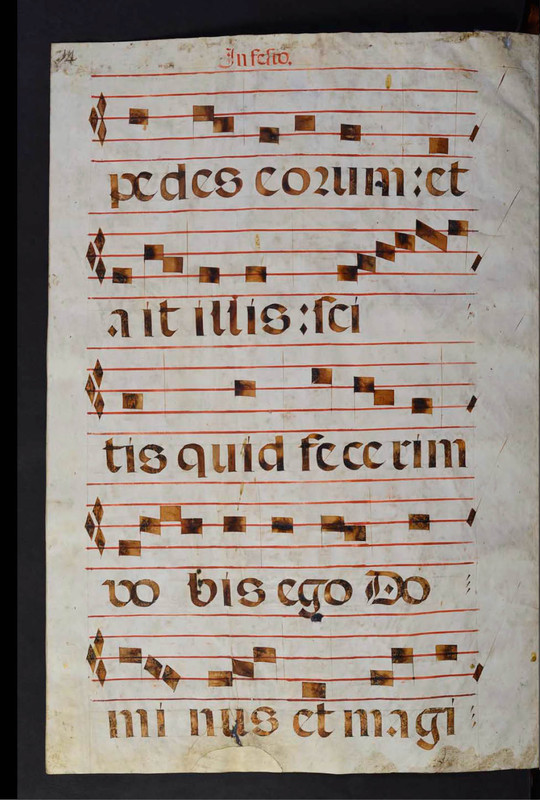 In festo.
pedes eorum: et
ait illis: sci
tis quid fecerim
vo bis ego Do
mi nus et magi